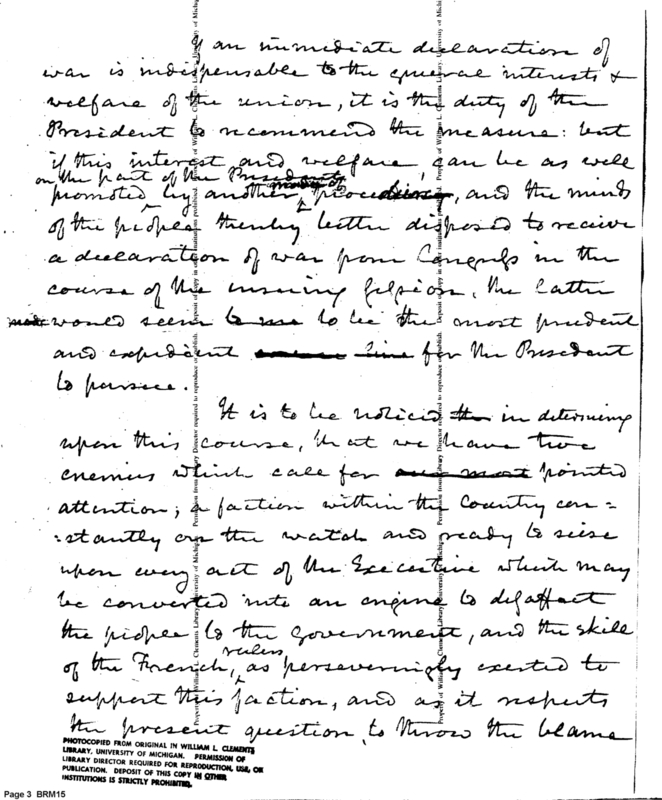 If an immediate declaration of
war is indispensable to the general interests &
welfare of the union, it is the duty of the
President to recommend the measure: but
if this interest and welfare, can be as well
on the part of the President
promoted by another mode of proceeding, and the minds
of the people thereby better disposed to receive
a declaration of war from Congress in the
course of the ensuing session, the latter
would seem to me to be the most prudent
and expedient line for the President
to pursue.
It is to be noticed the in determining
upon this course, that we have two
enemies which call for our most pointed
attention; a faction within the Country con=
=stantly on the watch and ready to seise
upon every act of the Executive which may
be converted into an engine to disaffect
the people to the Government, and the skill
rulers
of the French, as perseveringly exerted to
support this faction, and as it respects
the present question, to throw the blame
PHOTOCOPIED FROM ORIGINAL IN WILLIAM L. CLEMENTS
LIBRARY, UNIVERSITY OF MICHIGAN. PERMISSION OF
LIBRARY DIRECTOR REQUIRED FOR REPRODUCTION, USE, OR
PUBLICATION. DEPOSIT OF THIS COPY IN OTHER
INSTITUTIONS IS STRICTLY PROHIBITED.
Page 3 BRM15